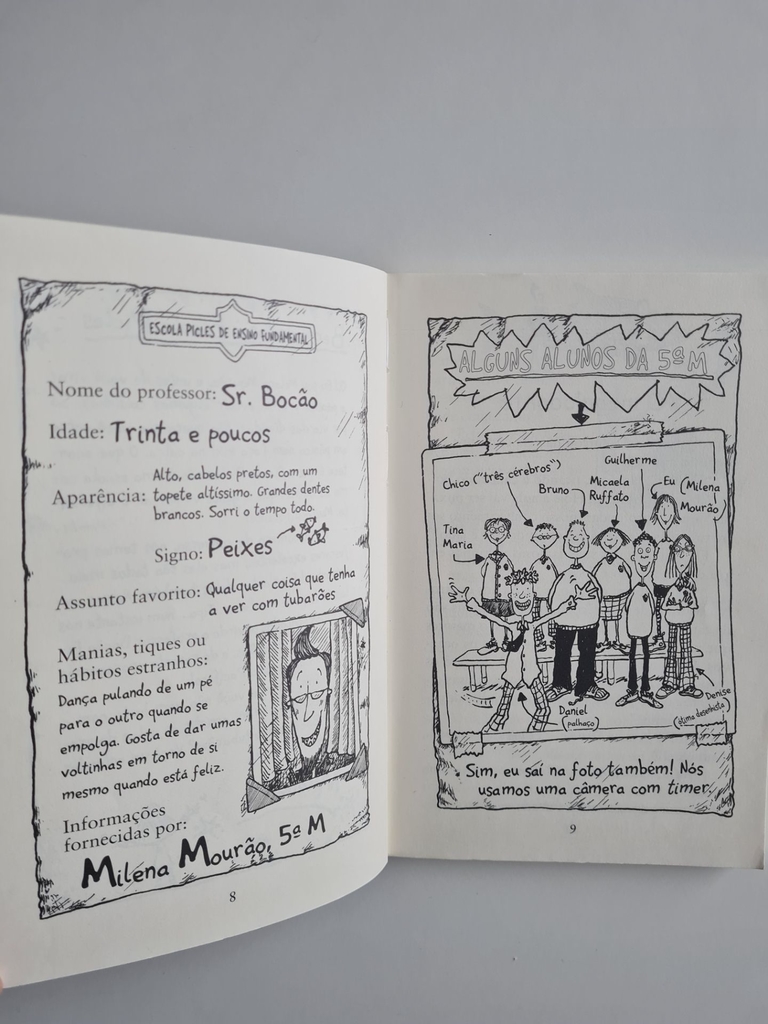 ESCOLA PICLES DE ENSINO FUNDAMENTAL
Nome do professor: Sr. Bocão
Idade: Trinta e poucos
Aparência: Alto, cabelos pretos, com um
topete altíssimo. Grandes dentes
brancos. Sorri o tempo todo.
Signo: Peixes
Assunto favorito: Qualquer coisa que tenha
a ver com tubarões
Manias, tiques ou
hábitos estranhos:
Dança pulando de um pé
para o outro quando se
empolga. Gosta de dar umas
voltinhas em torno de si
mesmo quando está feliz.
Informações
fornecidas por:
Milena Mourão, 5ª M
8
ALGUNS ALUNOS DA 5ª M
Chico ("três cérebros")
Guilherme
Bruno
Micaela
Ruffato
Eu (Milena
Mourão)
Tina
Maria
Daniel
(palhaço)
Denise
(ótima desenhista)
Sim, eu saí na foto também! Nós
usamos uma câmera com timer.
9